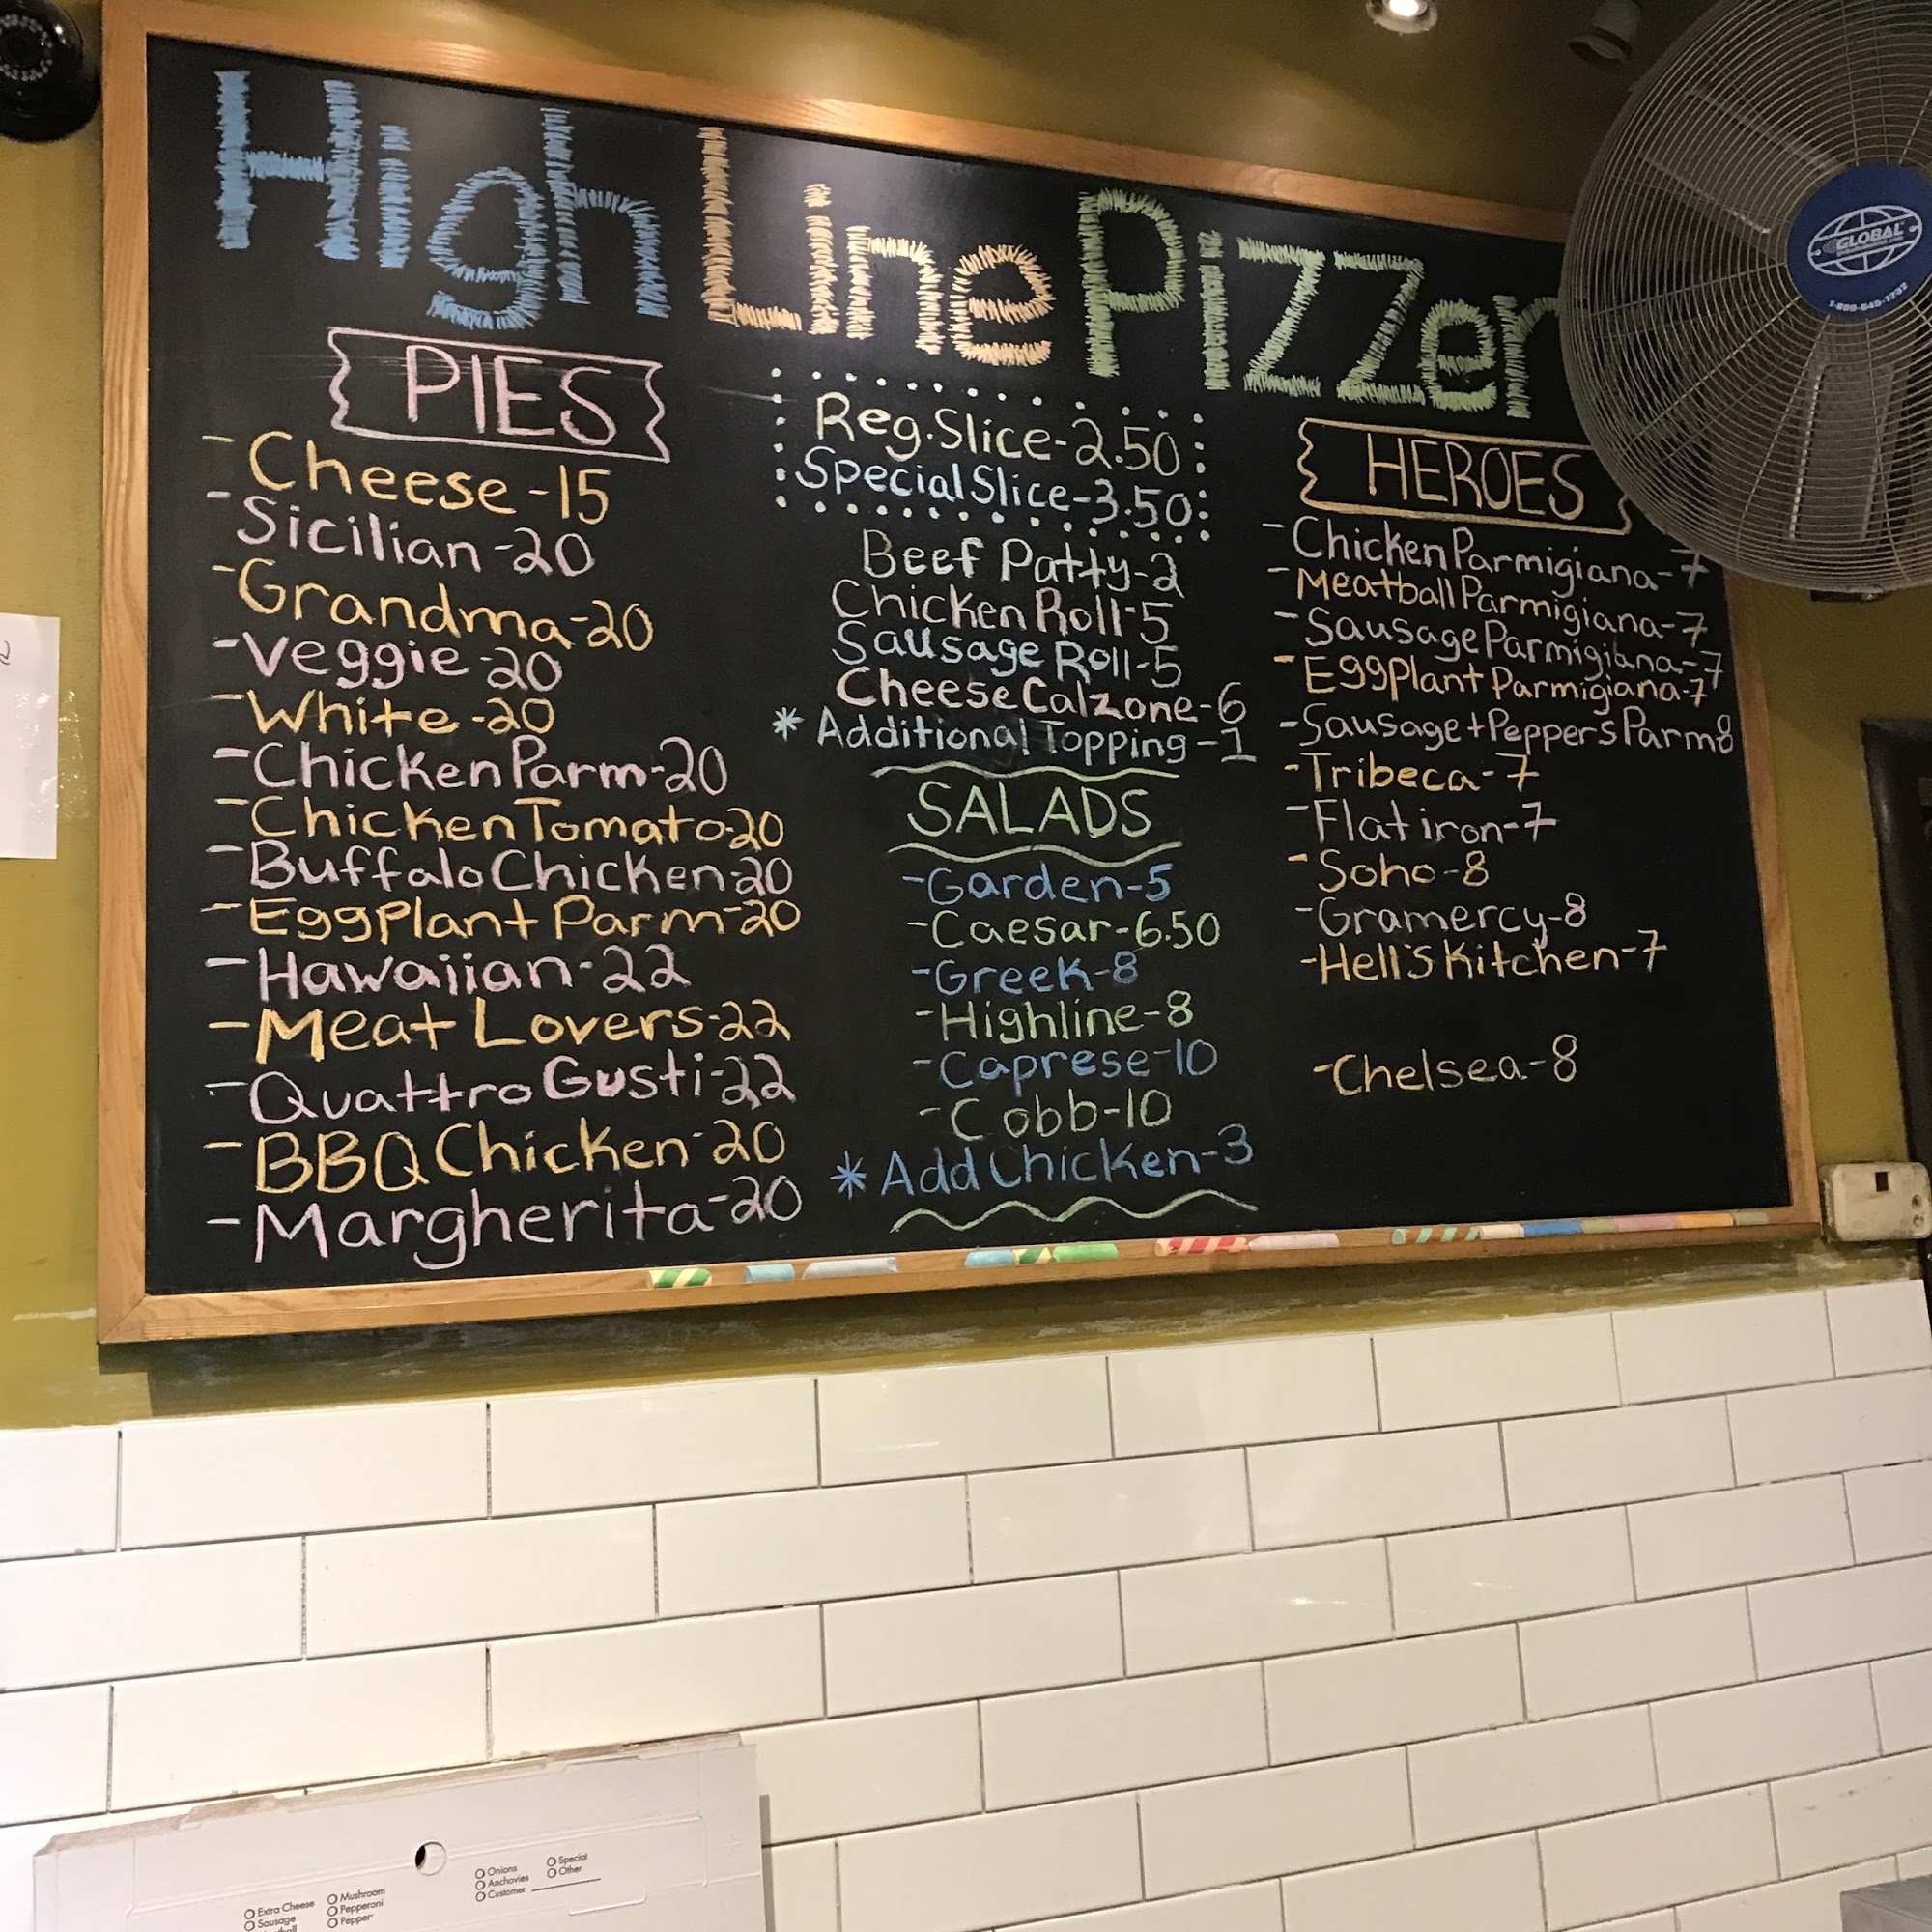 High Line Pizzer
PIES
- Cheese - 15
- Sicilian - 20
- Grandma - 20
- Veggie - 20
- White - 20
- Chicken Parm - 20
- Chicken Tomato - 20
- Buffalo Chicken - 20
- EggPlant Parm - 20
- Hawaiian - 22
- Meat Lovers - 22
- Quattro Gusti - 22
- BBQ Chicken - 20
- Margherita - 20
Reg. Slice - 2.50
Special Slice - 3.50
Beef Patty - 2
Chicken Roll - 5
Sausage Roll - 5
Cheese Calzone - 6
* Additional Topping - 1
SALADS
- Garden - 5
- Caesar - 6.50
- Greek - 8
- Highline - 8
- Caprese - 10
- Cobb - 10
* Add Chicken - 3
HEROES
- Chicken Parmigiana - 7
- Meatball Parmigiana - 7
- Sausage Parmigiana - 7
- EggPlant Parmigiana - 7
- Sausage + Peppers Parm 8
- Tribeca - 7
- Flatiron - 7
- Soho - 8
- Gramercy - 8
- Hell's Kitchen - 7
- Chelsea - 8
GLOBAL
1-800-645-1232
Extra Cheese
Sausage
Mushroom
Pepperoni
Pepper
Onions
Anchovies
Customer
Special
Other